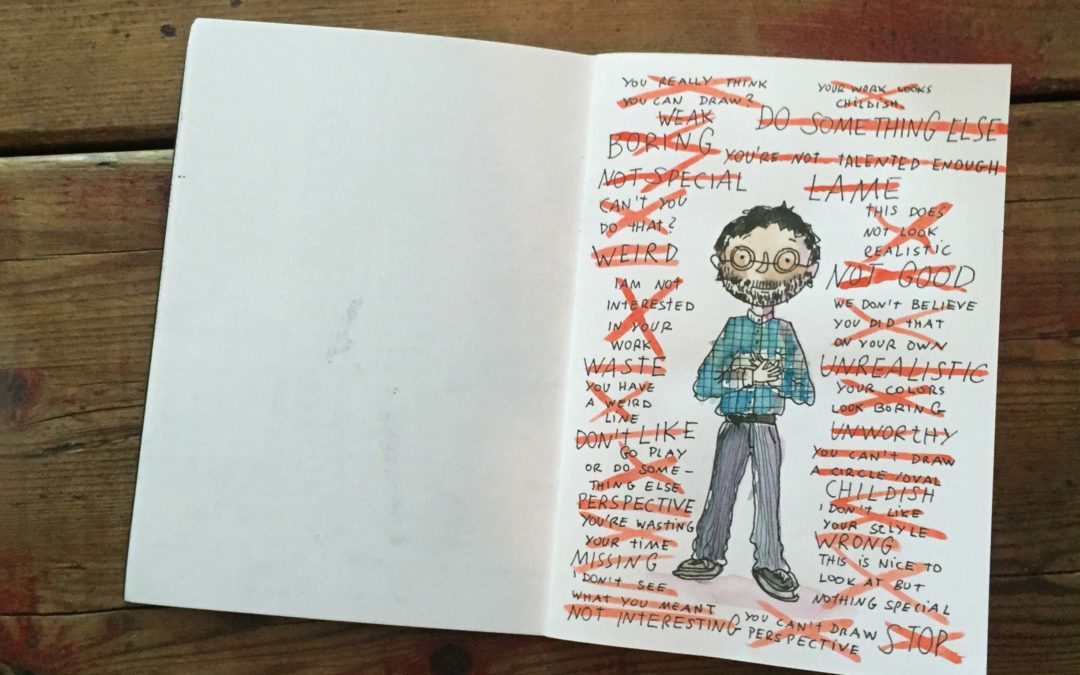 YOU REALLY THINK
YOU CAN DRAW?
WEAK
BORING
NOT SPECIAL
CAN'T YOU
DO THAT?
WEIRD
I AM NOT
INTERESTED
IN YOUR
WORK
WASTE
YOU HAVE
A WEIRD
LINE
DON'T LIKE
GO PLAY
OR DO SOME-
THING ELSE
PERSPECTIVE
YOU'RE WASTING
YOUR TIME
MISSING
I DON'T SEE
WHAT YOU MEANT
NOT INTERESTING
YOUR WORK LOOKS
CHILDISH.
DO SOMETHING ELSE
YOU'RE NOT TALENTED ENOUGH
LAME
THIS DOES
NOT LOOK
REALISTIC
NOT GOOD
WE DON'T BELIEVE
YOU DID THAT
ON YOUR OWN
UNREALISTIC
YOUR COLORS
LOOK BORING
UNWORTHY
YOU CAN'T DRAW
A CIRCLE/OVAL
CHILDISH
I DON'T LIKE
YOUR STLYLE
WRONG
THIS IS NICE TO
LOOK AT BUT
NOTHING SPECIAL
YOU CAN'T DRAW
PERSPECTIVE
STOP